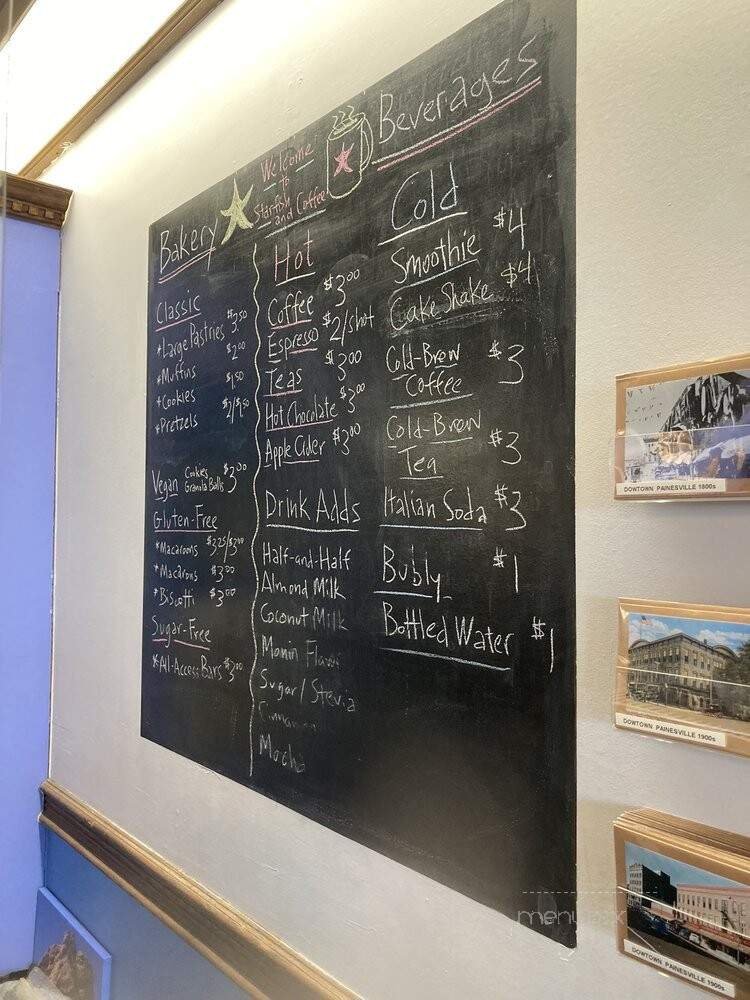 Welcome
to
Starfish
and Coffee
Bakery
Classic
*Large Pastries $3.50
*Muffins $2.00
*Cookies $1.50
*Pretzels
Vegan Cookies $3.00
Granola Balls
Gluten-Free
*Macaroons $3.25/$3.00
*Macarons $3.00
*Biscotti $3.00
Sugar-Free
*All-Access Bars $3.00
Hot
Coffee $3.00
Espresso $2/shot
Teas $3.00
Hot Chocolate $3.00
Apple Cider $3.00
Drink Adds
Half-and-Half
Almond Milk
Coconut Milk
Monin Flavor
Sugar/Stevia
Cinnamon
Mocha
Beverages
Cold
Smoothie $4
Cake Shake $4
Cold-Brew
Coffee $3
Cold-Brew
Tea $3
Italian Soda $3
Bubly $1
Bottled Water $1
DOWTOWN PAINESVILLE 1800s
DOWTOWN PAINESVILLE 1900s
DOWTOWN PAINESVILLE 1900s